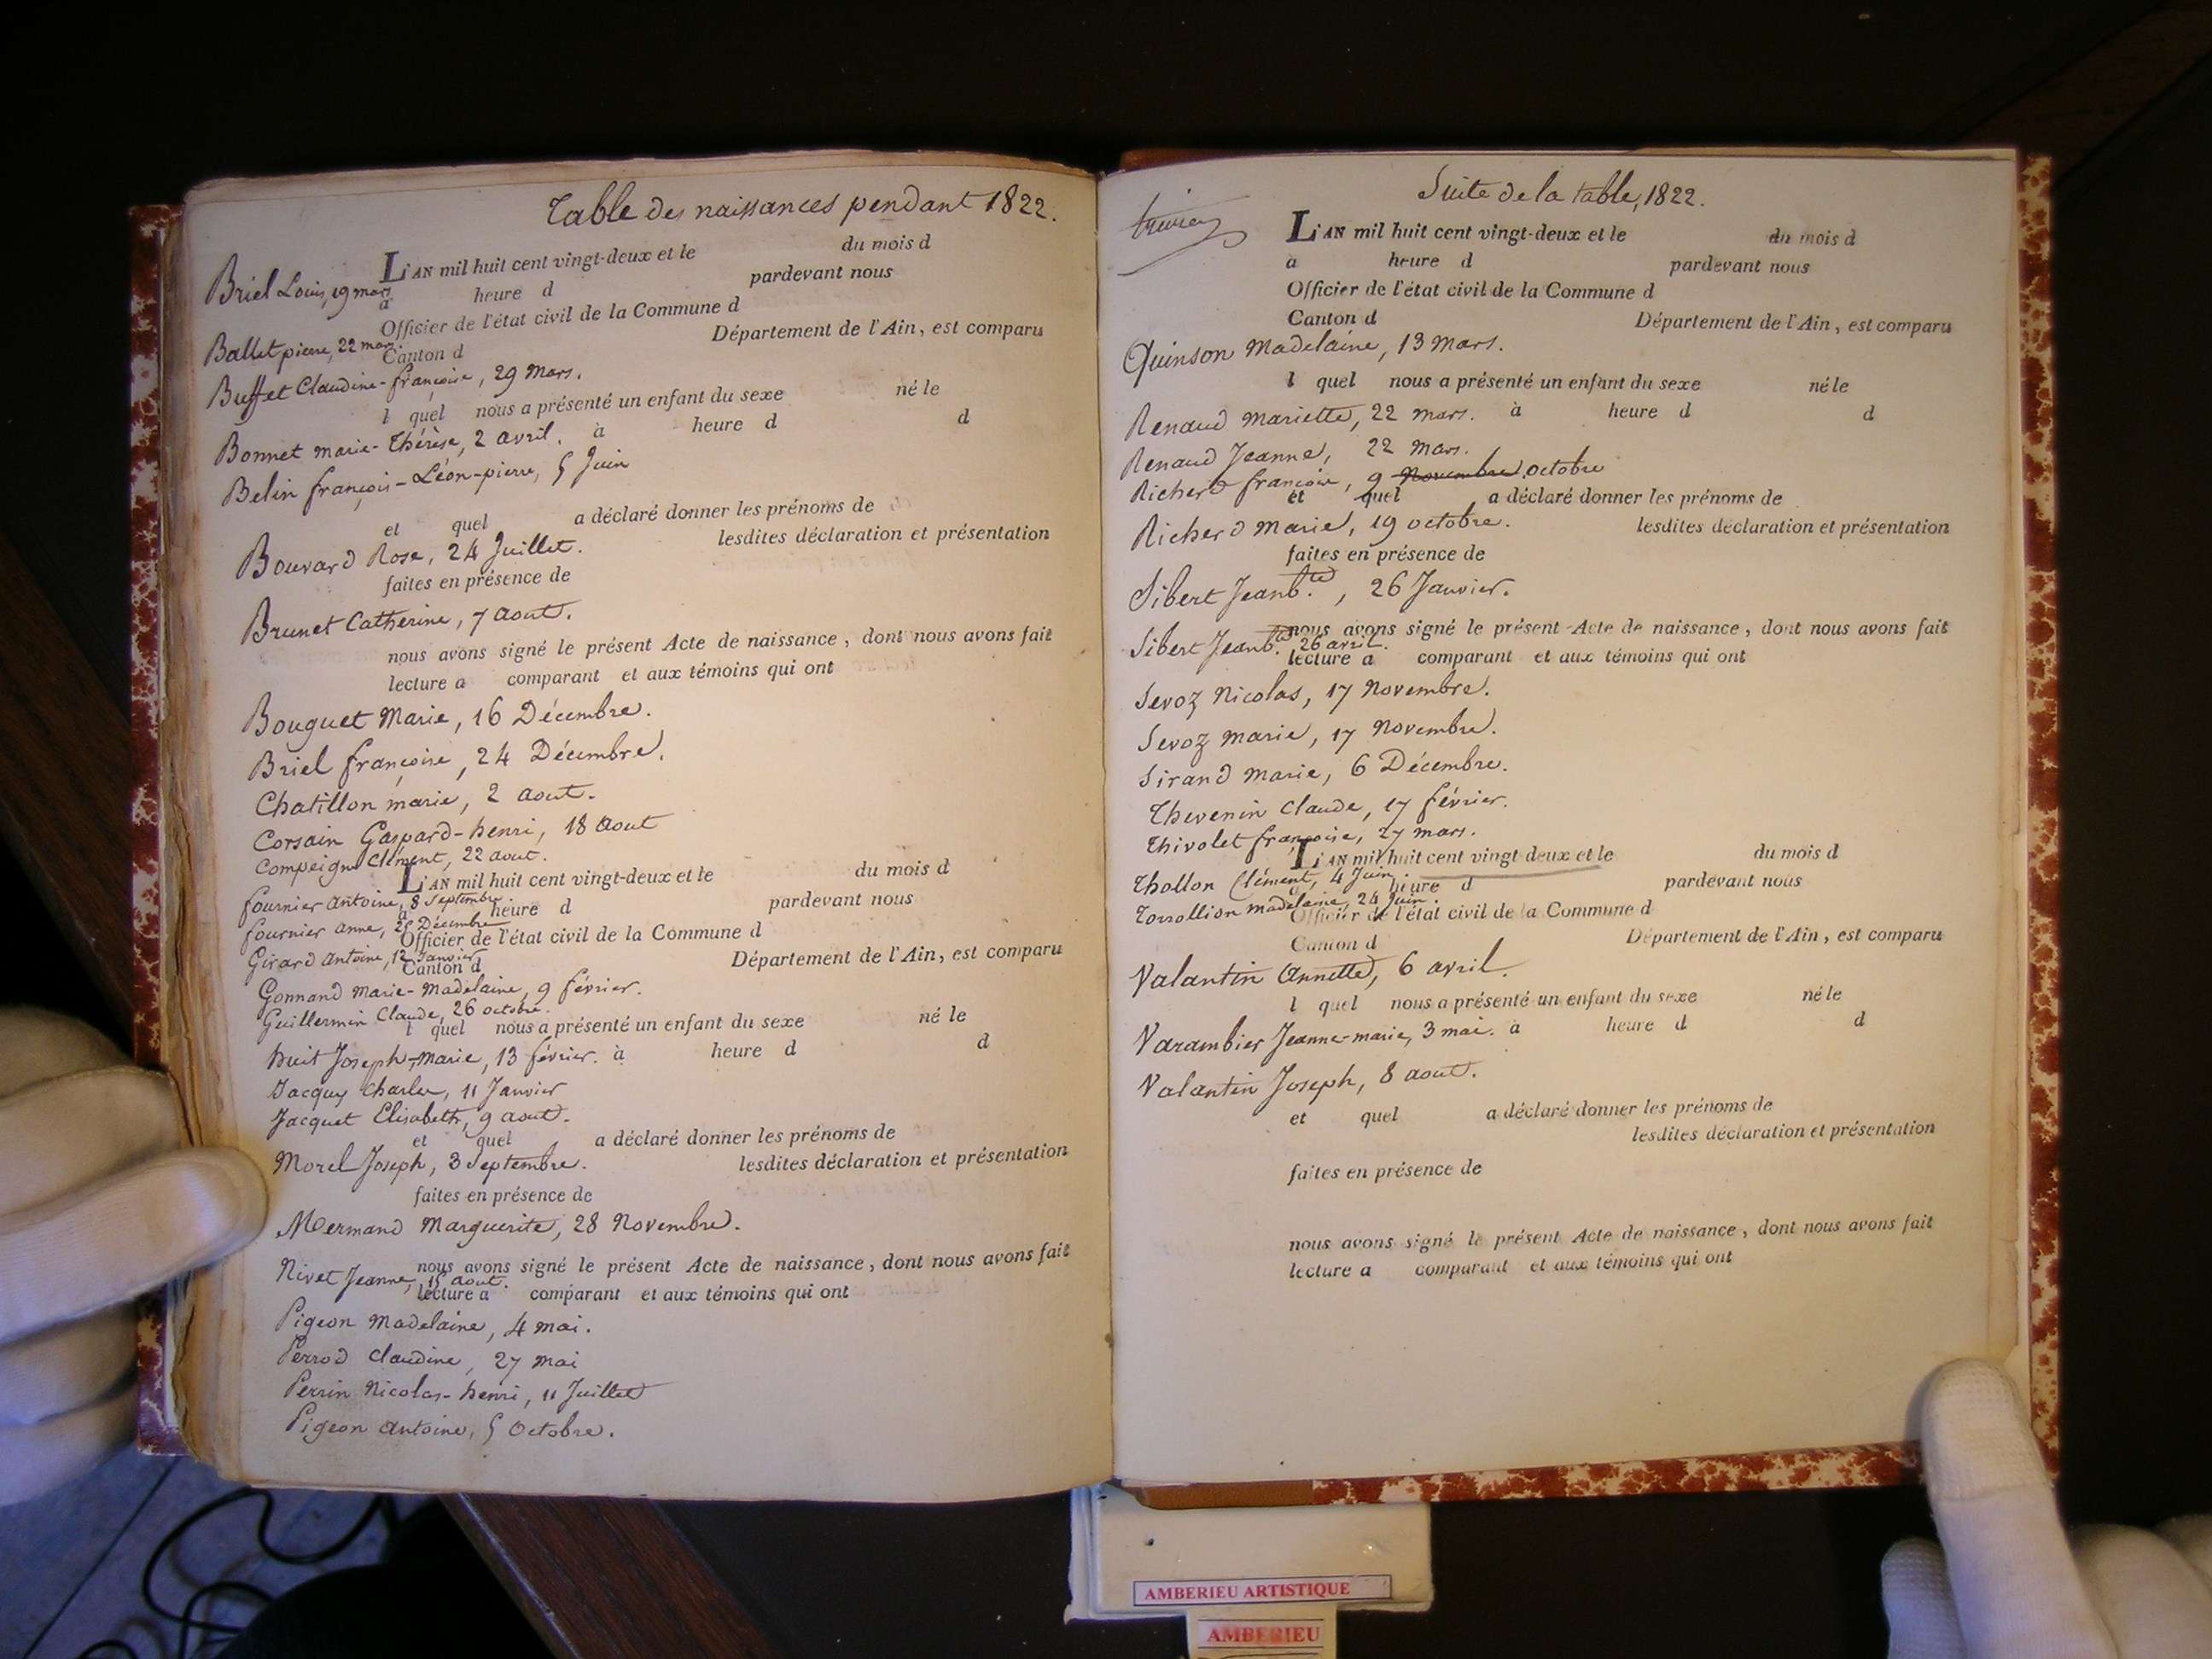 Table des naissances pendant 1822.
L'AN mil huit cent vingt-deux et le du mois d
Briel Louis, 19 mars
à heure d pardevant nous
Officier de l'état civil de la Commune d
Ballet pierre, 22 mars.
Canton d Département de l'Ain, est comparu
Buffet Claudine-françoise, 29 Mars.
l quel nous a présenté un enfant du sexe né le
Bonnet marie-Thérèse, 2 avril. à heure d d
Belin françois-Léon-pierre, 5 Juin
et quel a déclaré donner les prénoms de
Bouvard Rose, 24 Juillet. lesdites déclaration et présentation
faites en présence de
Brunet Catherine, 7 aout.
nous avons signé le présent Acte de naissance, dont nous avons fait
lecture a comparant et aux témoins qui ont
Bouguet Marie, 16 Décembre.
Briel françoise, 24 Décembre.
Chatillon marie, 2 aout.
Corsain Gaspard-henri, 18 aout
Compeign Clément, 22 aout.
L'AN mil huit cent vingt-deux et le du mois d
fournier Antoine, 8 Septembre
à heure d pardevant nous
fournier anne, Décembre
Officier de l'état civil de la Commune d
Girard Antoine, 12 Janvier
Canton d Département de l'Ain, est comparu
Gonnand Marie-Madelaine, 9 février.
Guillermin Claude, 26 octobre.
l quel nous a présenté un enfant du sexe né le
huit Joseph-marie, 13 février. à heure d d
Jacquy Charles, 11 Janvier
Jacquet Elisabeth, 9 aout.
et quel a déclaré donner les prénoms de
Morel Joseph, 3 Septembre. lesdites déclaration et présentation
faites en présence de
Mermand Marguerite, 28 Novembre.
nous avons signé le présent Acte de naissance, dont nous avons fait
Nivet Jeanne, 15 aout.
lecture a comparant et aux témoins qui ont
Pigeon Madelaine, 4 mai.
Perrod Claudine, 27 mai
Perrin Nicolas-henri, 11 Juillet
Pigeon Antoine, 5 Octobre.
Suite de la table, 1822.
L'AN mil huit cent vingt-deux et le du mois d
à heure d pardevant nous
Officier de l'état civil de la Commune d
Canton d Département de l'Ain, est comparu
Quinson Madelaine, 13 Mars.
l quel nous a présenté un enfant du sexe né le
Renaud Mariette, 22 mars. à heure d d
Renaud Jeanne, 22 mars.
Richerd françoise, 9 Novembre octobre
et quel a déclaré donner les prénoms de
Richerd Marie, 19 octobre. lesdites déclaration et présentation
faites en présence de
Sibert Jean bte, 26 Janvier.
nous avons signé le présent Acte de naissance, dont nous avons fait
Sibert Jean bte 26 avril.
lecture a comparant et aux témoins qui ont
Sevoz Nicolas, 17 Novembre.
Sevoz Marie, 17 Novembre.
Sirand Marie, 6 Décembre.
Thevenin Claude, 17 février.
Thivolet françoise, 27 mars.
L'AN mil huit cent vingt-deux et le du mois d
Thollon Clément, 4 Juin.
heure d pardevant nous
Torrollion Madelaine, 24 Juin.
Officier de l'état civil de la Commune d
Canton d Département de l'Ain, est comparu
Valantin Annette, 6 avril.
l quel nous a présenté un enfant du sexe né le
Varambier Jeanne-marie, 3 mai. à heure d d
Valantin Joseph, 8 aout.
et quel a déclaré donner les prénoms de
lesdites déclaration et présentation
faites en présence de
nous avons signé le présent Acte de naissance, dont nous avons fait
lecture a comparant et aux témoins qui ont
AMBERIEU ARTISTIQUE
AMBERIEU